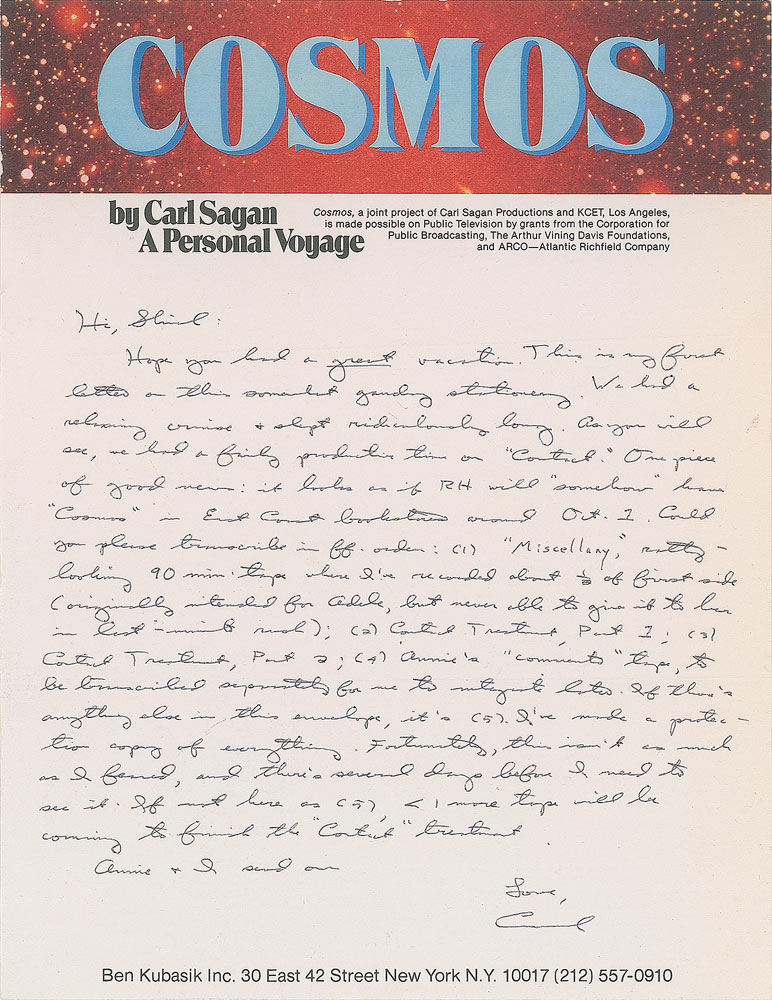 COSMOS
by Carl Sagan
A Personal Voyage
Cosmos, a joint project of Carl Sagan Productions and KCET, Los Angeles,
is made possible on Public Television by grants from the Corporation for
Public Broadcasting, The Arthur Vining Davis Foundations,
and ARCO—Atlantic Richfield Company
Hi, Shirl:
Hope you had a great vacation. This is my first
letter on this somewhat gaudy stationery. We had a
relaxing cruise + slept ridiculously long. As you will
see, we had a fairly productive time on "Contact." One piece
of good news: it looks as if RH will "somehow" have
"Cosmos" in East Coast bookstores around Oct. 1. Could
you please transcribe in ff. order: (1) "Miscellany," ratty-
looking 90 min. tape where I've recorded about ⅓ of first side
(originally intended for Adele, but never able to give it to her
in last-minute rush); (2) Contact Treatment, Part 1; (3)
Contact Treatment, Part 2; (4) Annie's "comments" tape, to
be transcribed separately for me to integrate later. If there's
anything else in this envelope, it's (5). I've made a protec-
tion copy of everything. Fortunately, this isn't as much
as I feared, and there's several days before I need to
see it. If not here as (5), < 1 more tape will be
coming to finish the "Contact" treatment.
Annie + I send our
Love,
Carl
Ben Kubasik Inc. 30 East 42 Street New York N.Y. 10017 (212) 557-0910